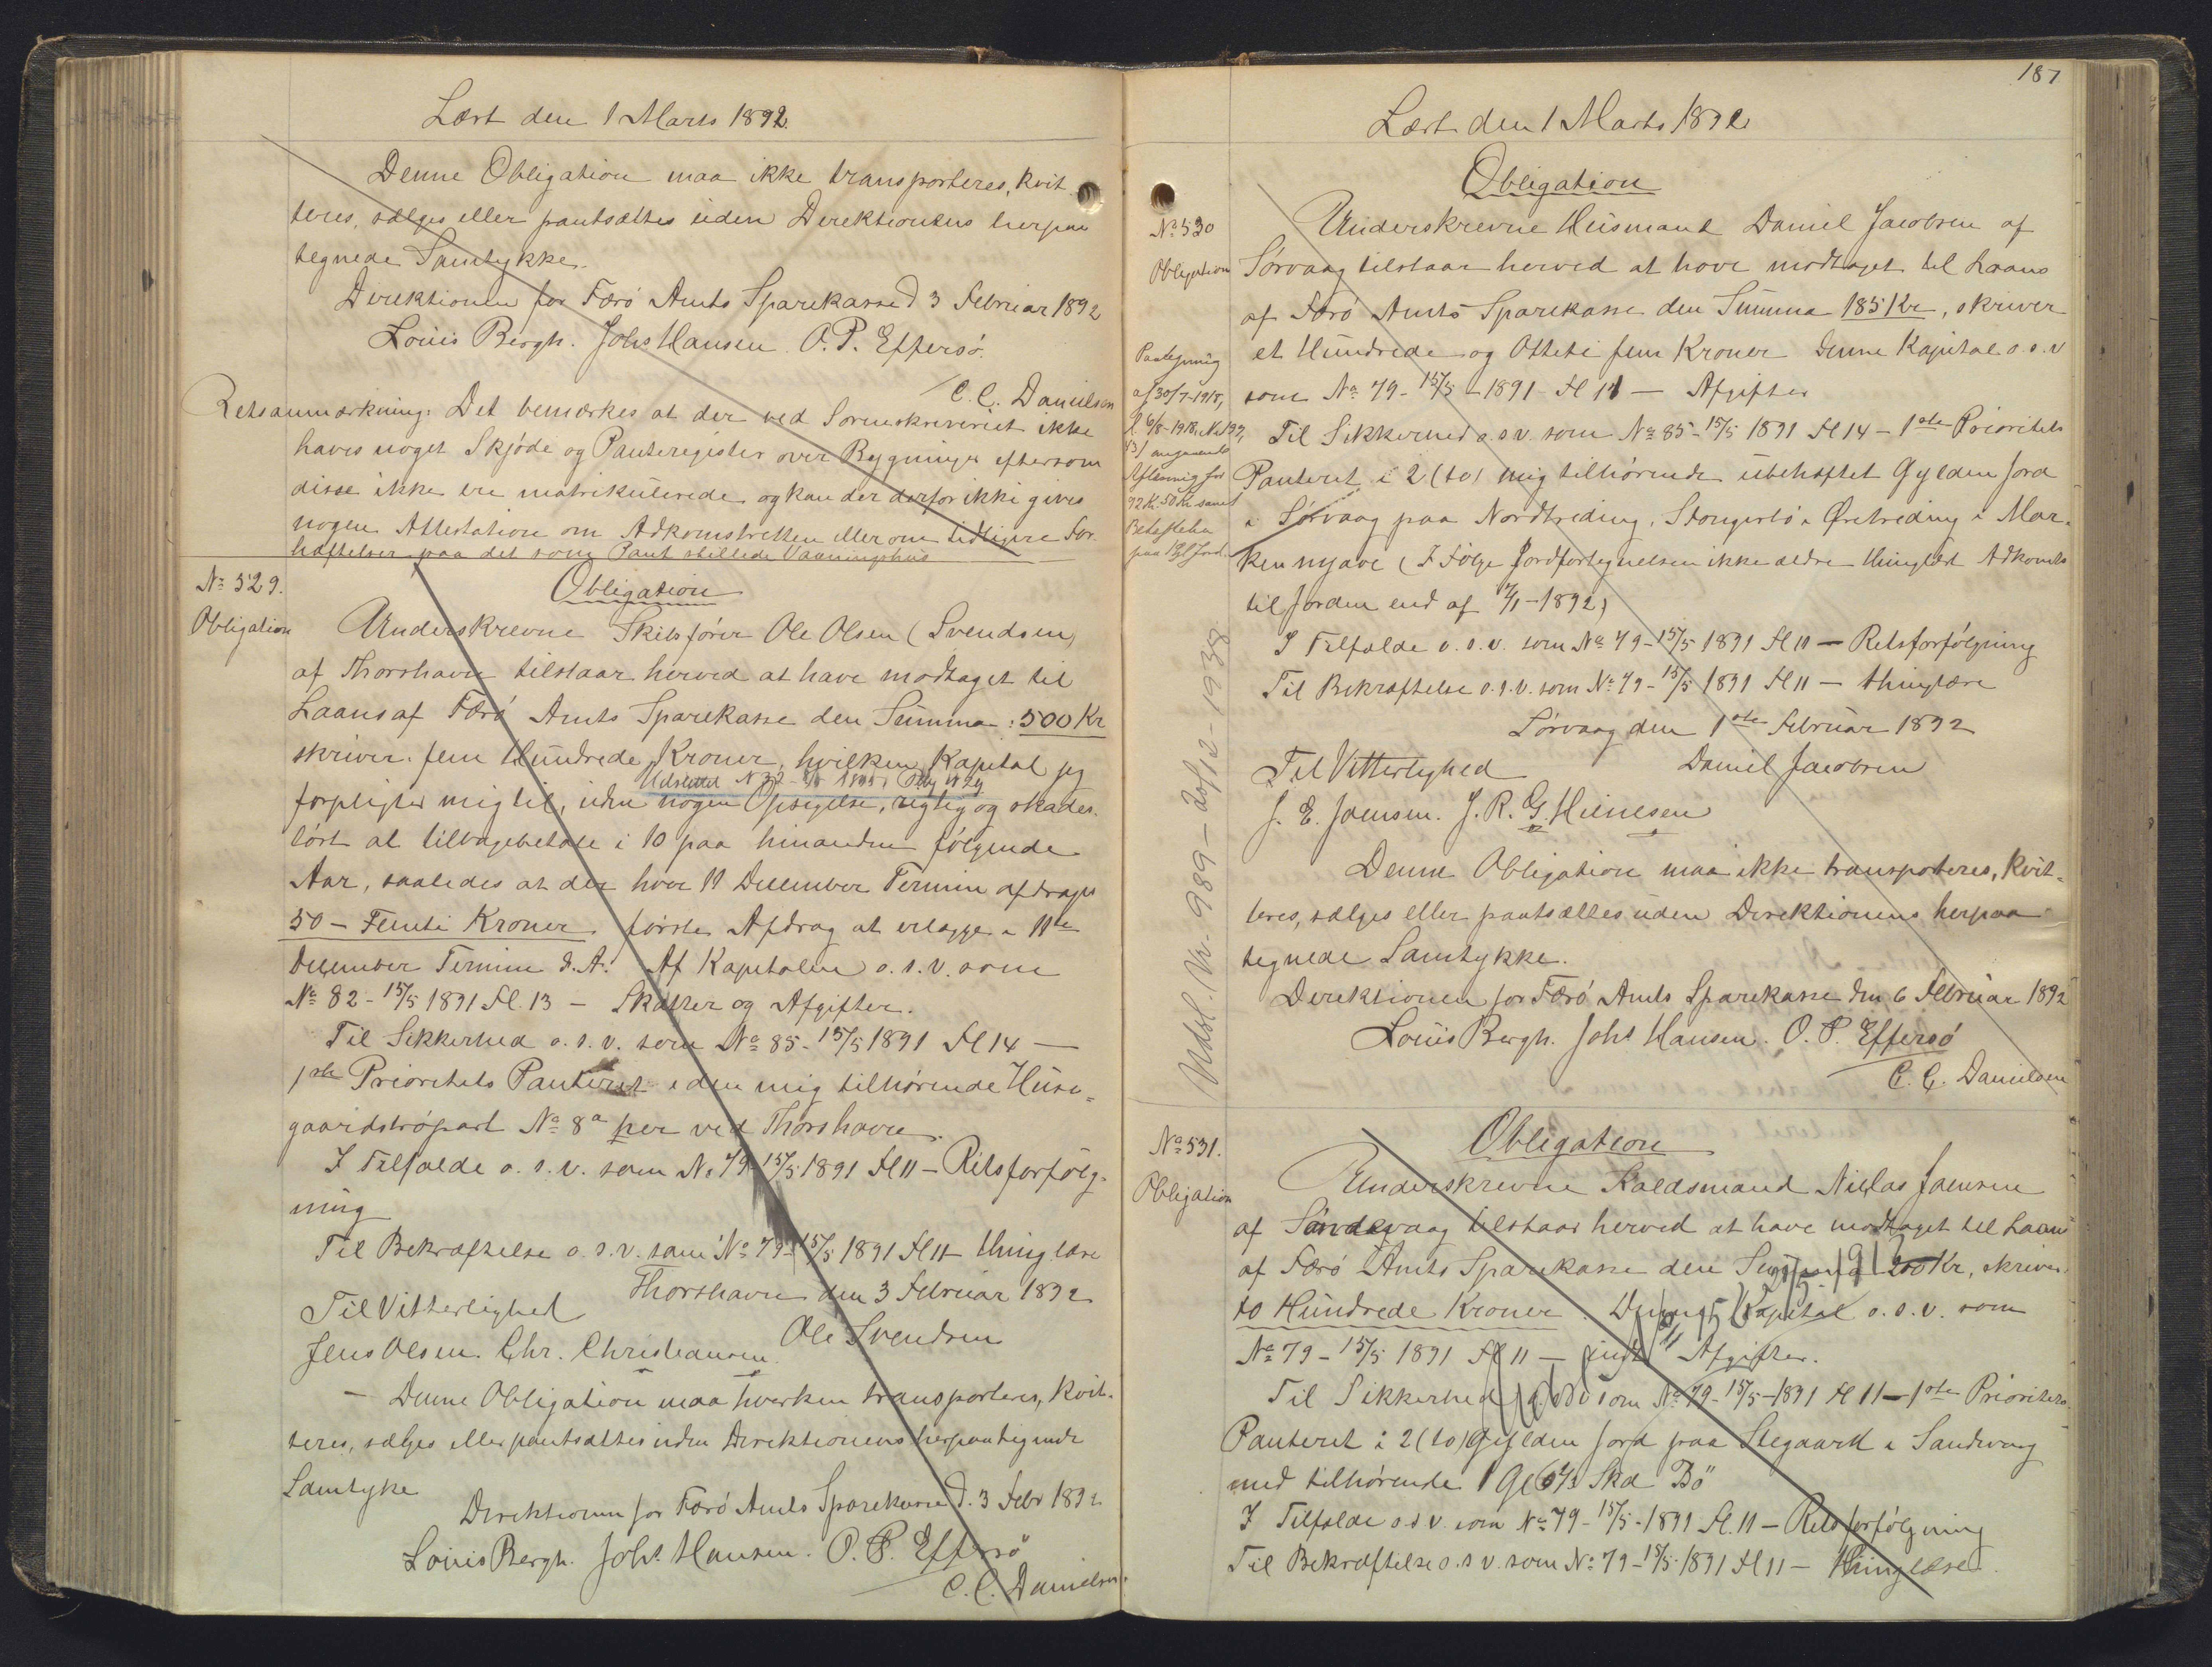 Læst den 1 Marts 1892.
Denne Obligation maa ikke transporteres, kvit
teres, sælges eller pantsættes uden Direktionens herpaa
tegnede Samtykke.
Direktionen for Færö Amts Sparekasse d 3 Februar 1892
Louis Bergh. Johs Hansen. O. P. Effersö.
C. C. Danielsen
Retsanmærkning: Det bemærkes at der ved Sorenskriveriet ikke
haves noget Skjöde og Panteregister over Bygninger eftersom
disse ikke ere matrikulerede og kan der derfor ikke gives
nogen Attestation om Adkomstretten eller om tidligere For
hæftelser paa det som Pant stillede Vaaningshus
No 529.
Obligation
Obligation
Underskrevne Skibsförer Ole Olsen (Svendsen)
af Thorshavn tilstaar herved at have modtaget til
Laans af Færö Amts Sparekasse den Summa: 500 Kr
skriver fem Hundrede Kroner, hvilken Kapital jeg
Udslettet
forpligter mig til, uden nogen Opsigelse, rigtig og skades-
löst at tilbagebetale i 10 paa hinanden fölgende
Aar, saaledes at der hver 11 December Termin afdrages
50 – Femti Kroner, förste Afdrag at erlægge i 11te
December Termin d. A. Af Kapitalen o. s. v. som
No 82 - 15/5 1891 Fl. 13 – Skatter og Afgifter.
Til Sikkerhed o. s. v. som No 85 - 15/5 1891 Fl 14 —
1ste Prioritets Panteret i den mig tilhörende Huse-
gaardströpart No 8a her ved Thorshavn.
I Tilfælde o. s. v. som No 79 15/5 1891 Fl 11 – Retsforfölg-
ning
Til Bekræftelse o. s. v. som No 79 - 15/5 1891 Fl 11 – thinglæse
Thorshavn den 3 Februar 1892
Til Vitterlighed
Ole Svendsen
Jens Olsen. Chr. Christiansen.
– Denne Obligation maa hverken transporteres, kvit-
teres, sælges eller pantsættes uden Direktionens herpaategnede
Samtykke
Direktionen for Færö Amts Sparekasse d. 3 Febr 1892
Louis Bergh. Johs Hansen. O. P. Effersö
C. C. Danielsen.
187
Læst den 1 Marts 1892
Obligation
No 530
Obligation
Underskrevne Husmand Daniel Jacobsen af
Sörvaag tilstaar herved at have modtaget til Laans
af Færö Amts Sparekasse den Summa 185 Kr, skriver
et Hundrede og Otteti fem Kroner Denne Kapital o. s. v
som No 79 - 15/5 - 1891 - Fl 11 — Afgifter
Til Sikkerhed o. s v. som No 85 - 15/5 1891 Fl 14 – 1ste Prioritets
Panteret i 2 (to) mig tilhörende ubehæftet Gylden Jord
i Sörvaag paa Nordtreding, Stongerbö i Østreding i Mar-
ken nyave (I Fölge Jordfortegnelsen ikke ældre thinglæst Adkomst
til Jorden end af 1892)
I Tilfælde o. s. v. som No 79 - 15/5 1891 Fl 11 – Retsforfölgning
Til Bekræftelse o. s. v. som No 79 - 15/5 1891 Fl 11 – thinglæse
Sörvaag den 1ste Februar 1892
Til Vitterlighed
Daniel Jacobsen
J. E. Joensen. J. R. G. Heinesen
Denne Obligation maa ikke transporteres, kvit-
teres, sælges eller pantsættes uden Direktionens herpaa
tegnede Samtykke.
Direktionen for Færö Amts Sparekasse den 6 Februar 1892
Louis Bergh. Johs Hansen. O. P. Effersö
C. C. Danielsen
Paategning
af 30/7-1918,
angaaende
Aflösning for
92 Kr. 50 samt
paa 1 Gl Jord.
Udsl. Nr. 989 – 20/12 - 1938
No 531.
Obligation
Obligation
Underskrevne Kaldsmand Niclas Joensen
af Sandevaag tilstaar herved at have modtaget til Laans
af Færö Amts Sparekasse den Summa 200 Kr, skriver
to Hundrede Kroner. Denne Kapital o. s. v. som
No 79 - 15/5 1891 Fl 11 — Afgifter.
Til Sikkerhed som No 79 - 15/5 - 1891 Fl 11 – 1ste Prioritets
Panteret i 2 (to) Gylden Jord paa Slegaard i Sandevaag
med tilhörende 1 Gl Skd Bö
I Tilfælde o s v. som No 79 - 15/5 - 1891 Fl. 11 – Retsforfölgning
Til Bekræftelse o. s v. som No 79 - 15/5 - 1891 Fl 11 – thinglæse